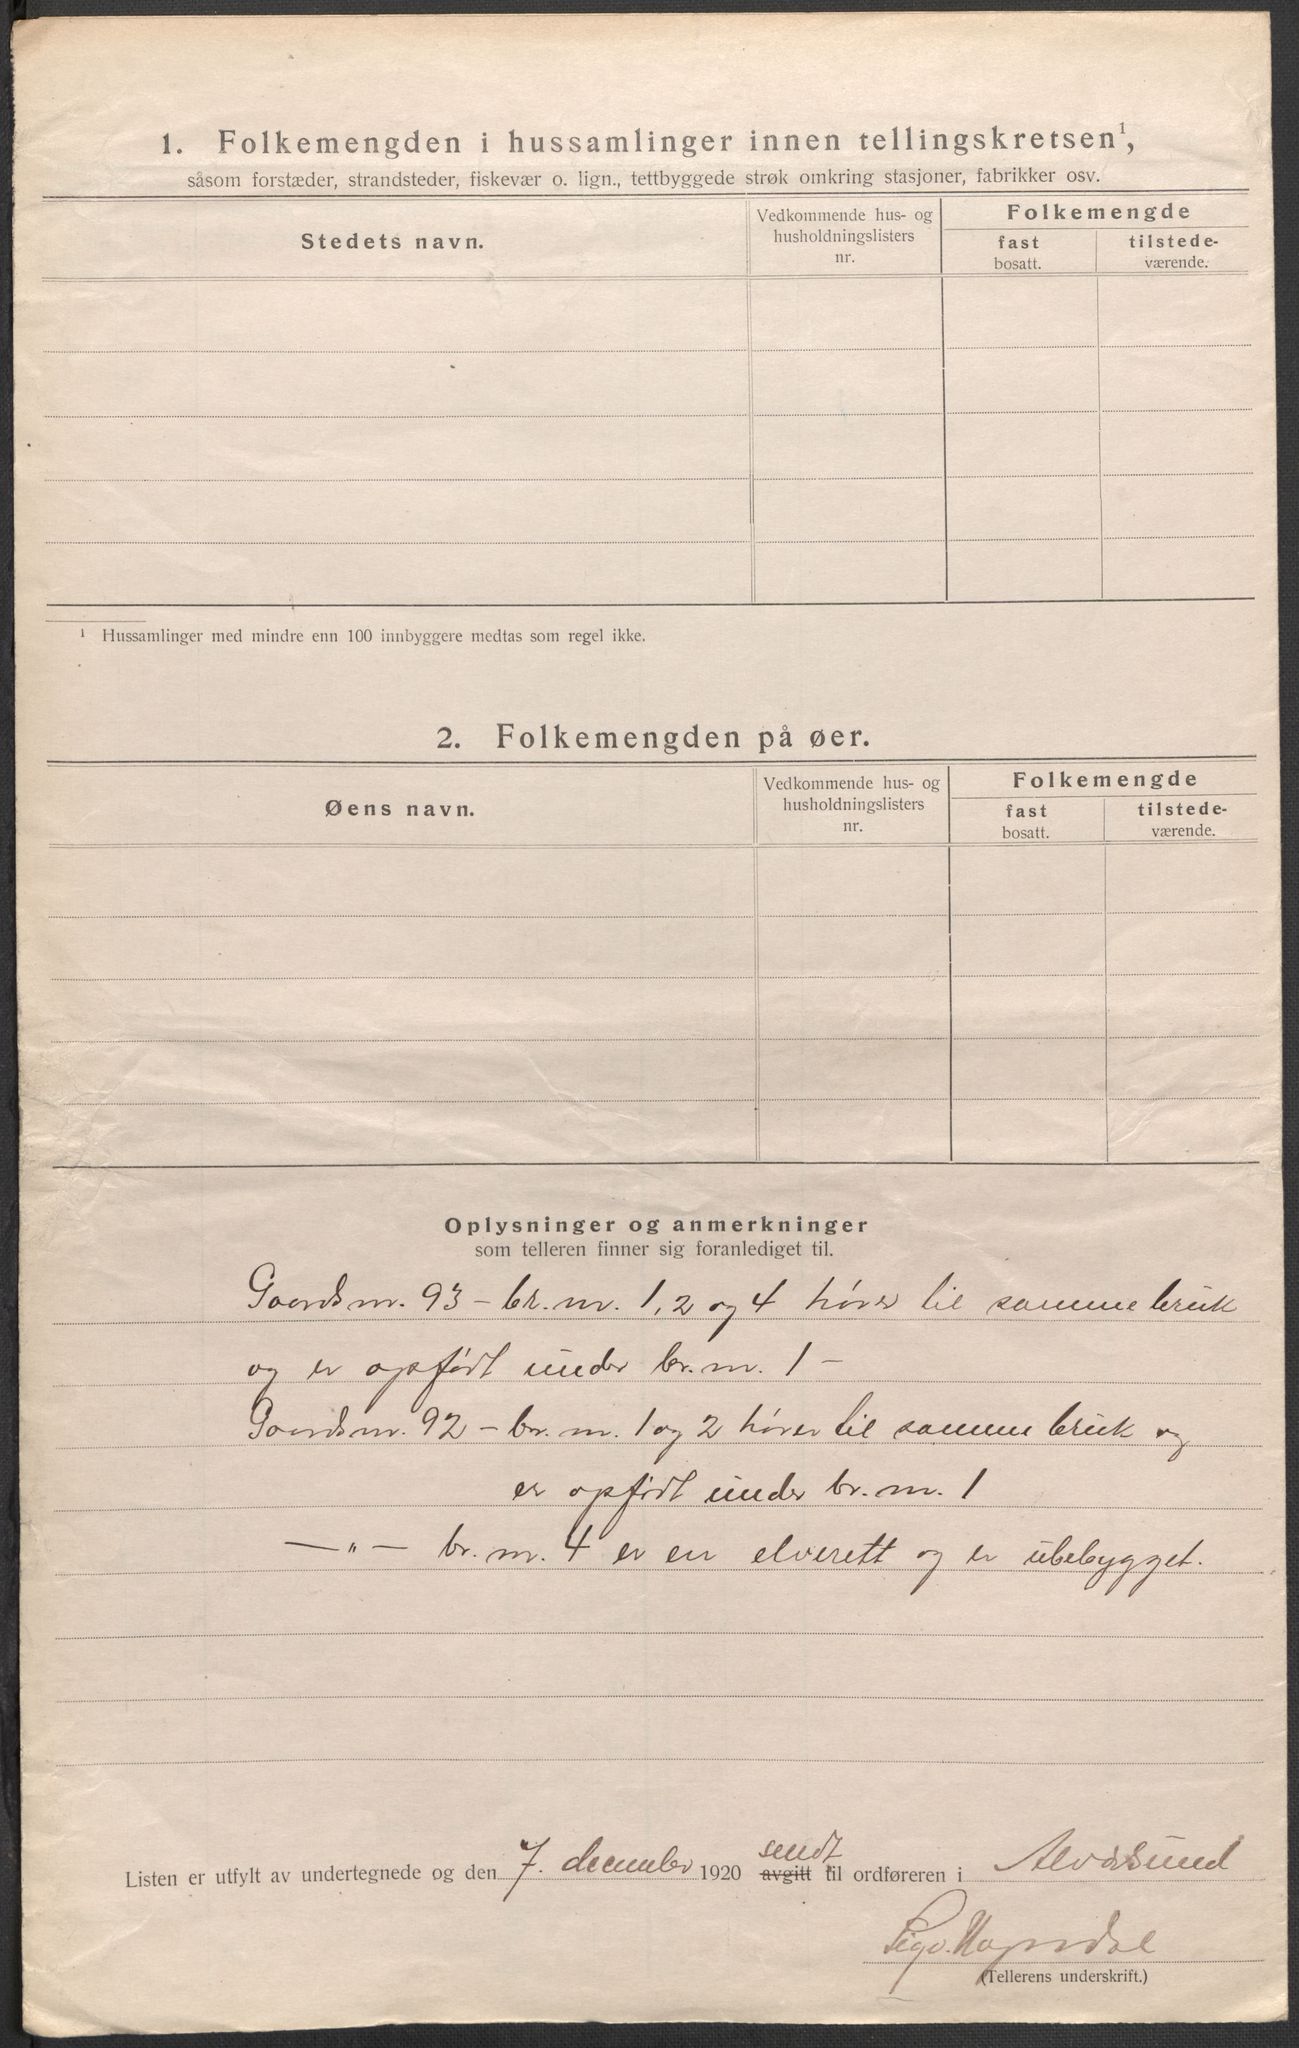 1. Folkemengden i hussamlinger innen tellingskretsen¹,
såsom forstæder, strandsteder, fiskevær o. lign., tettbyggede strøk omkring stasjoner, fabrikker osv.
Stedets navn.
Vedkommende hus- og
husholdningslisters
nr.
Folkemengde
fast
bosatt.
tilstede-
værende.
¹ Hussamlinger med mindre enn 100 innbyggere medtas som regel ikke.
2. Folkemengden på øer.
Øens navn.
Vedkommende hus- og
husholdningslisters
nr.
Folkemengde
fast
bosatt.
tilstede-
værende.
Oplysninger og anmerkninger
som telleren finner sig foranlediget til.
Gaardsnr. 93 – br. nr. 1, 2 og 4 hører til samme bruk
og er opført under br. nr. 1 –
Gaardsnr. 92 – br. nr. 1 og 2 hører til samme bruk og
er opført under br. nr. 1
— " — br. nr. 4 er en elverett og er ubebygget.
sendt
Listen er utfylt av undertegnede og den 7. december 1920 avgitt til ordføreren i Alversund
(Tellerens underskrift.)